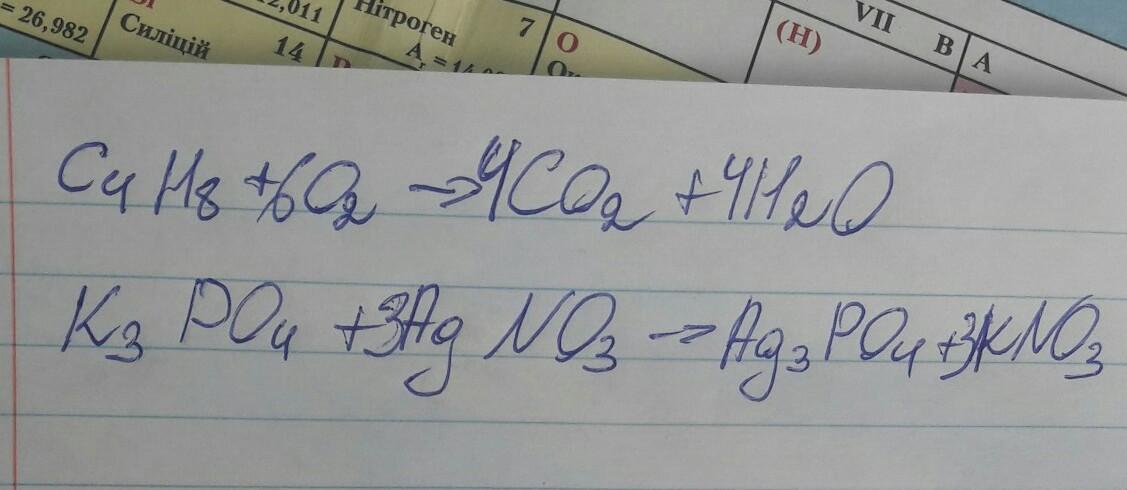 = 26,982
12,011
Силіцій 14
Нітроген 7
Aᵣ = 14,00
O
(H)
VII
B A
C₄H₈ + 6O₂ → 4CO₂ + 4H₂O
K₃PO₄ + 3AgNO₃ → Ag₃PO₄ + 3KNO₃